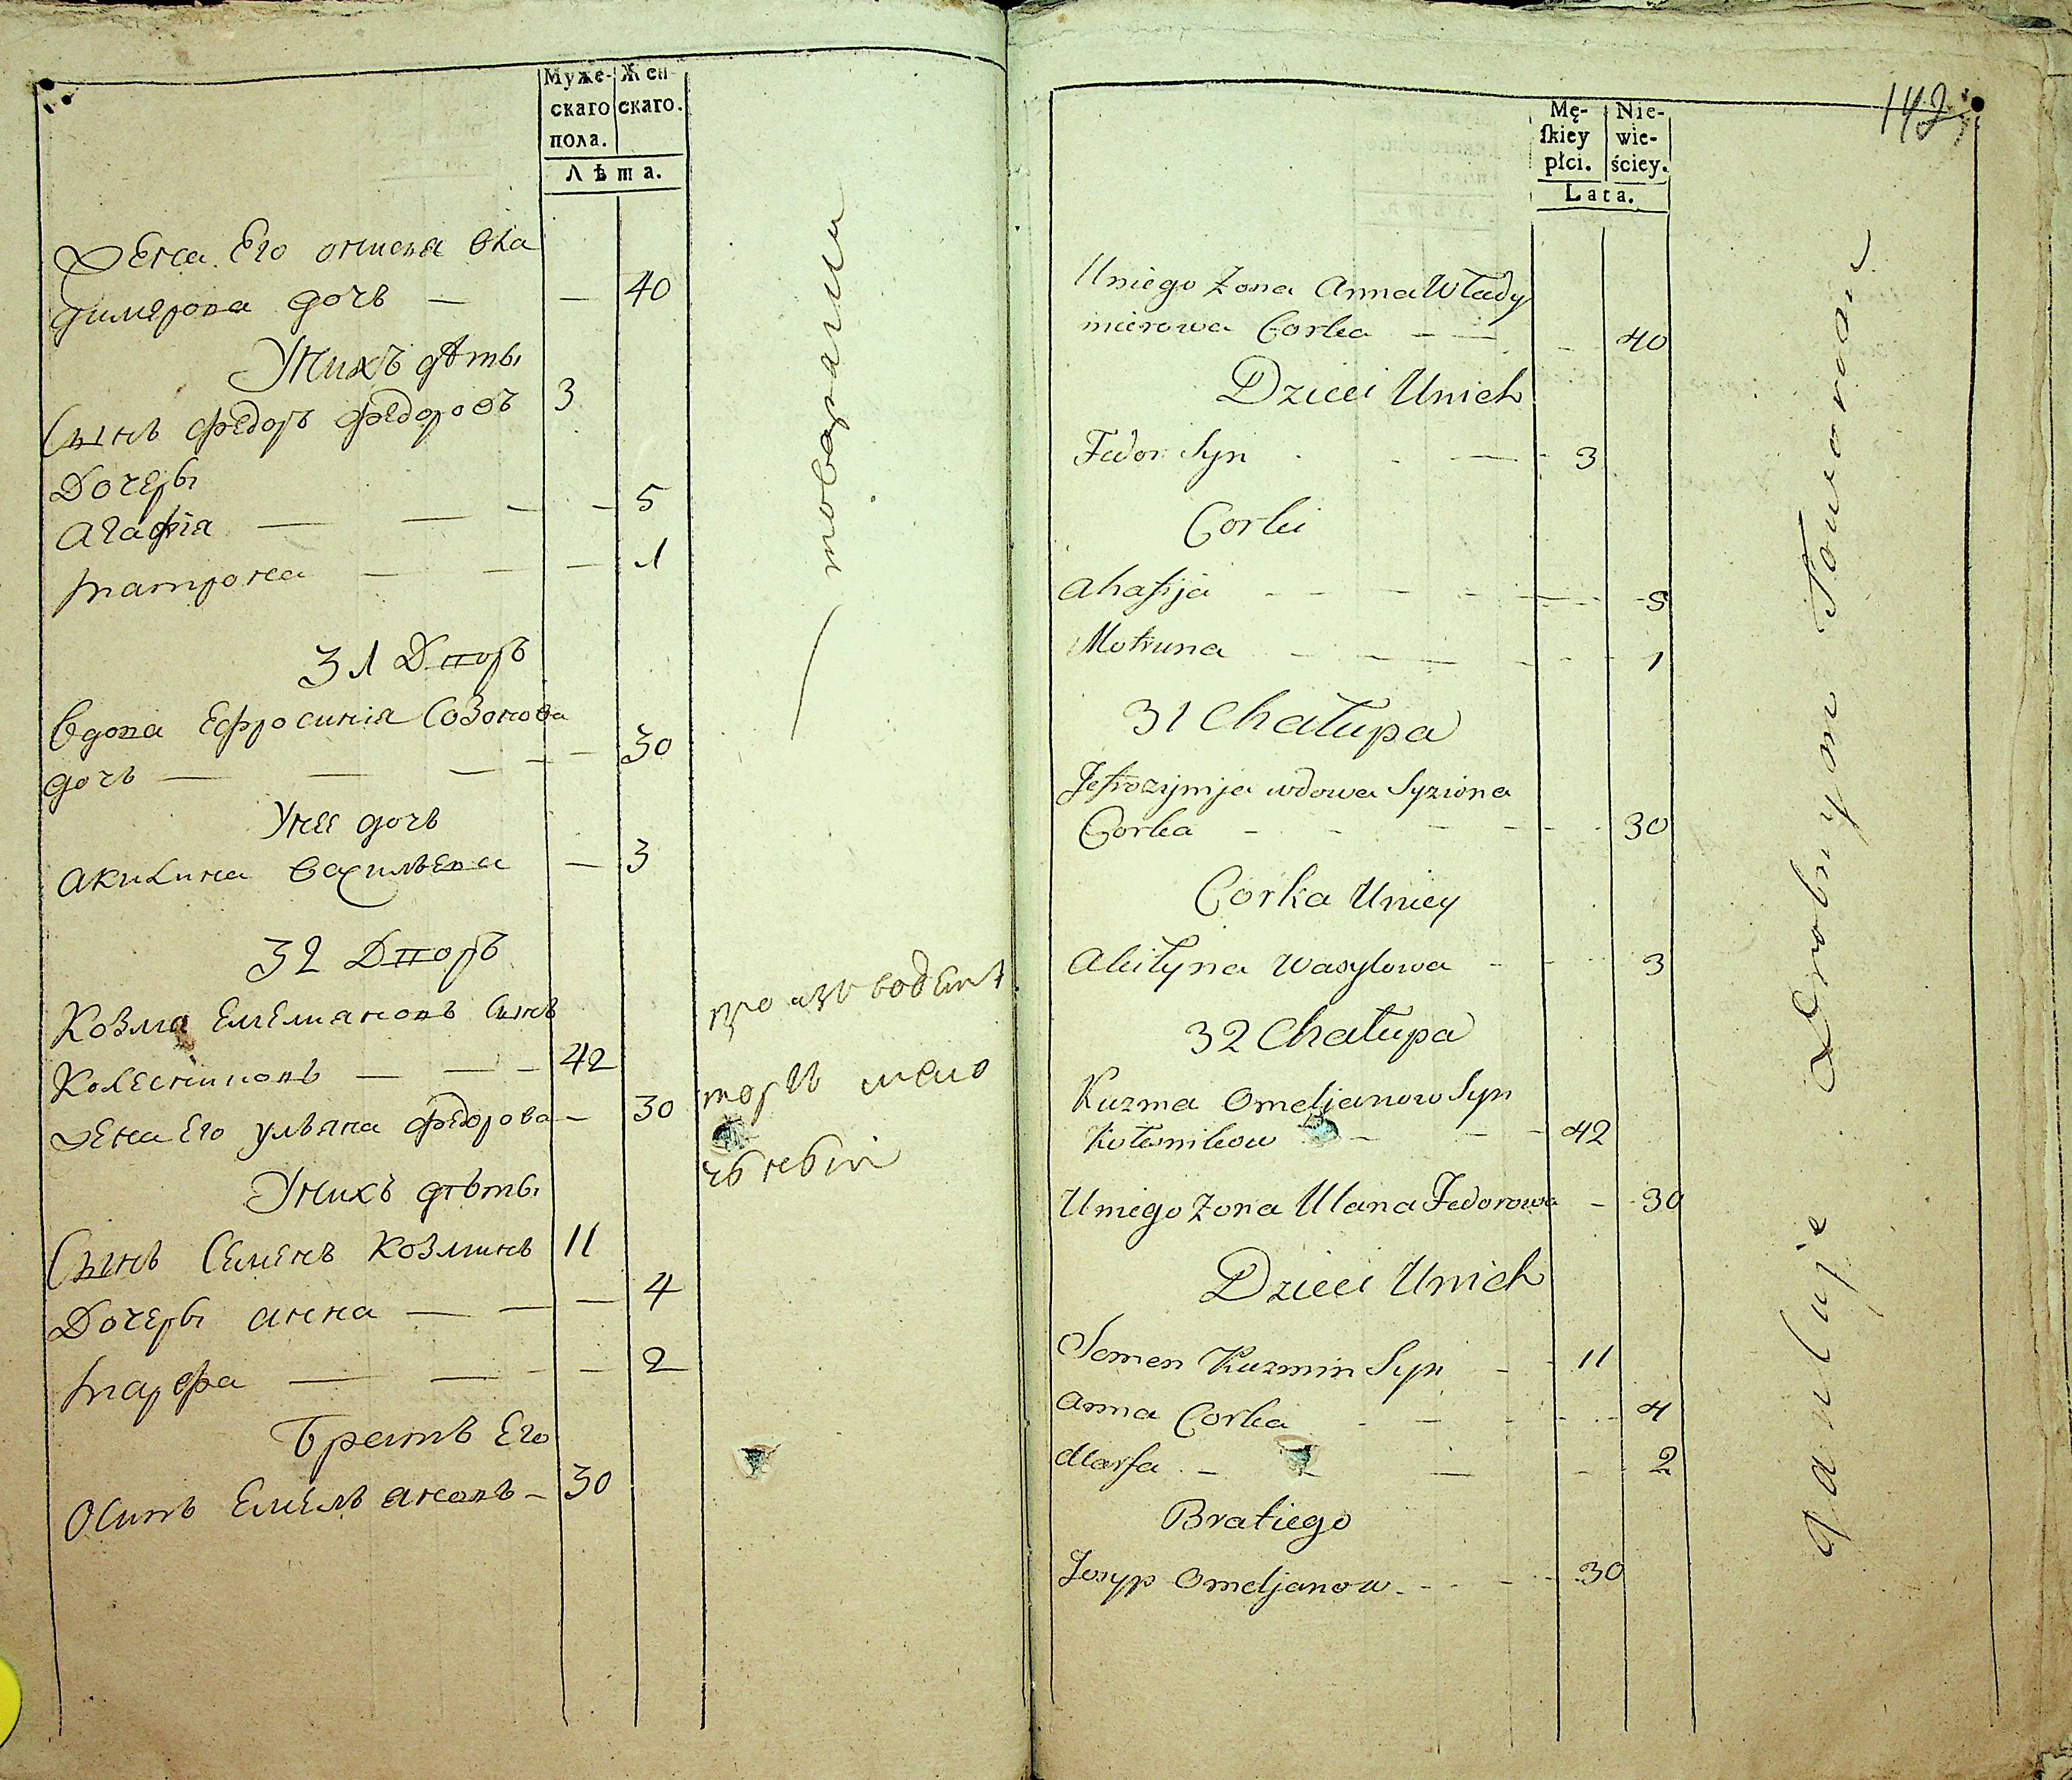 Муже-
скаго
пола.
Жен-
скаго.
Лѣта.
Жена Его анисья Вла
димерова дочь — — 40
Унихъ дѣты
Сынъ федоръ федоровъ 3
Дочеры
агафія — — — — 5
матрона — — — 1
31 Дворъ
Вдова Ефросинія Созонова
дочь — — — — — 30
Унее дочь
акилина васильева — 3
32 Дворъ
Козма Емельяновъ Сынъ
Колесниковъ — — — 42
Жена Его ульяна федорова — 30
Унихъ дѣты
Сынъ Семенъ Козминъ 11
Дочеры анна — — — 4
марфа — — — — 2
Братъ Его
Осипъ Емельановъ — 30
товарами
производитъ
торгъ мело
чьный
142
Mę-
skiey
płci.
Nie-
wie-
ściey.
Lata.
Uniego Zona Anna Włady
mierowa Corka — — — 40
Dzieci Unich
Fedor Syn — 3
Corki
Ahafija — — — — 5
Motruna — — — — 1
31 Chałupa
Jefrozymja wdowa Syziona
Corka — — — — 30
Corka Uniey
Akiłyna Wasylowa — — 3
32 Chałupa
Kuzma Omeljanow Syn
Kołesnikow — — — 42
Uniego Zona Ulana Fedorowa — 30
Dzieci Unich
Semen Kuzmin Syn — 11
Anna Corka — — — 4
Marfa — — — — 2
Brat iego
Josyp Omeljanow — — — 30
Drobnym Towarom